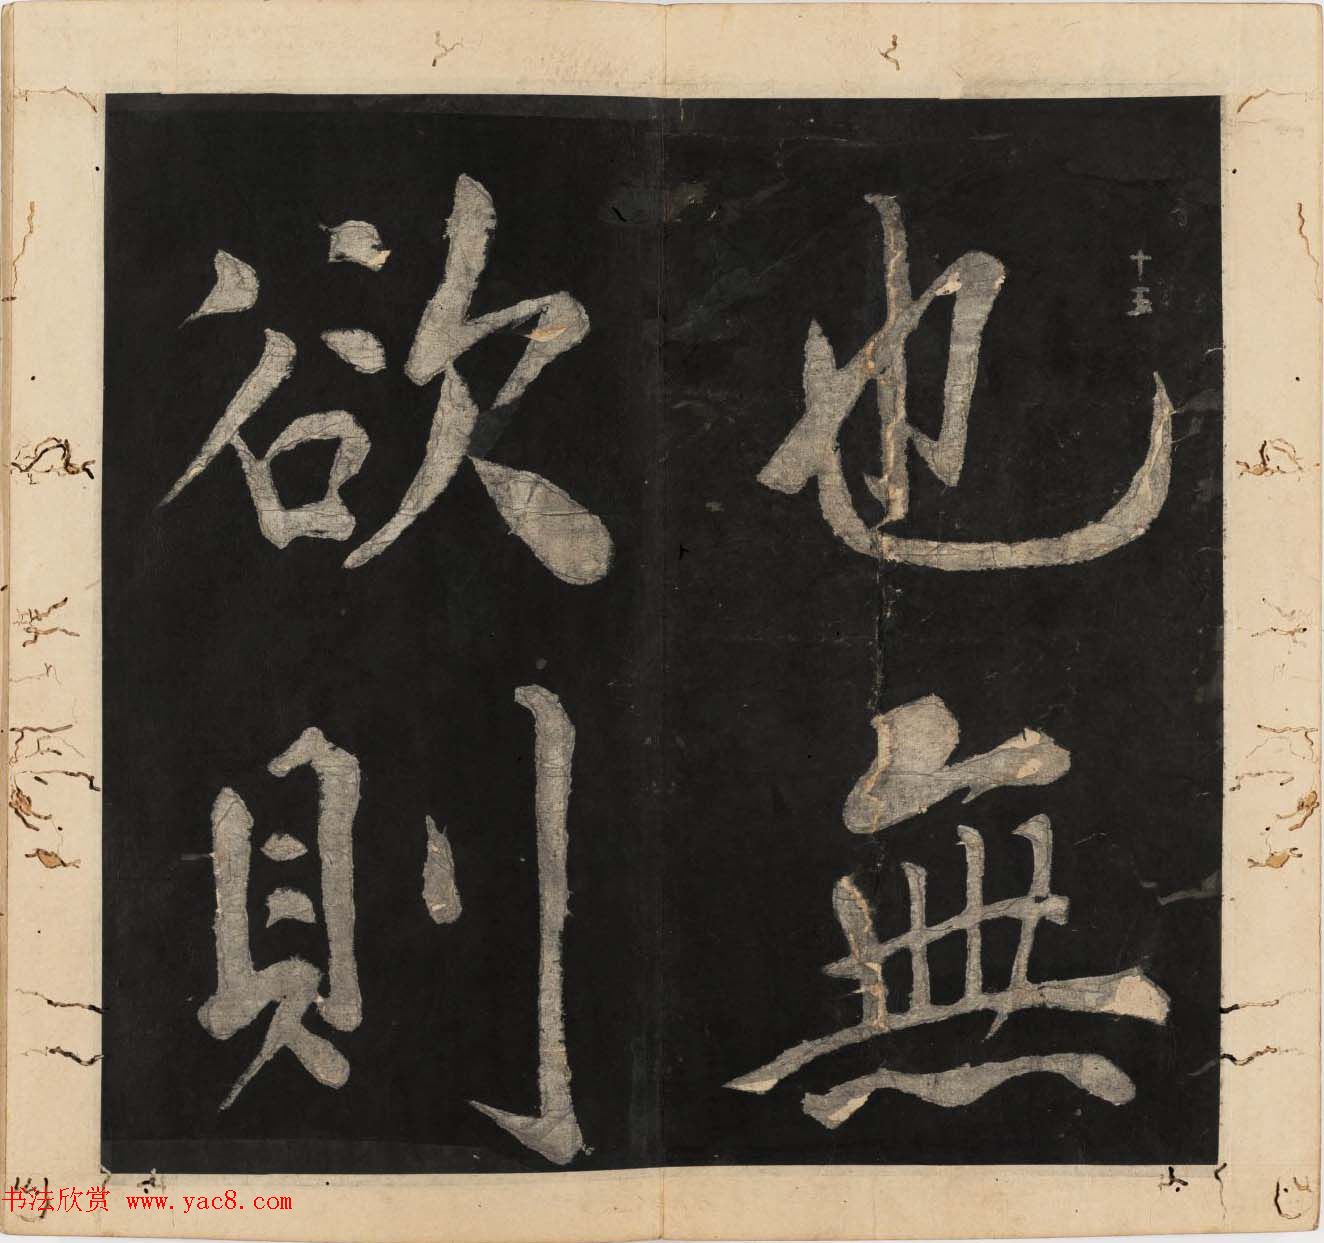 十五
也無
欲則
书法欣赏 www.yac8.com